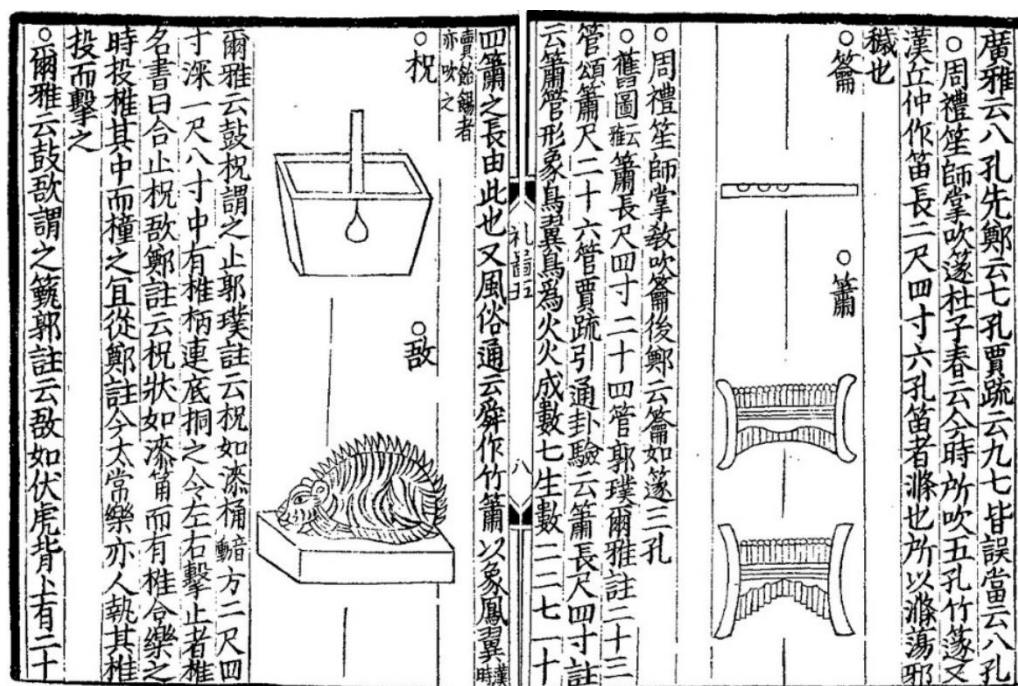 廣雅云八孔先鄭云七孔賈疏云九七皆誤當云八孔
○周禮笙師掌吹篴杜子春云今時所吹五孔竹篴又
漢丘仲作笛長二尺四寸六孔笛者滌也所以滌蕩邪
穢也
○籥
○簫
○周禮笙師掌敎吹籥後鄭云籥如篴三孔
○舊圖云雅簫長尺四寸二十四管郭璞爾雅註二十三
管頌簫尺二十六管賈疏引通卦驗云簫長尺四寸註
云簫管形象鳥翼鳥爲火火成數七生數二二七一十
礼圖五
八
四簫之長由此也又風俗通云舜作竹簫以象鳳翼漢時
賣飴餳者亦吹之
○柷
○敔
爾雅云鼓柷謂之止郭璞註云柷如漆桶方二尺四
寸深一尺八寸中有椎柄連底挏之令左右擊止者椎
名書曰合止柷敔鄭註云柷狀如漆筩而有椎合樂之
時投椎其中而撞之冝從鄭註今太常樂亦人執其椎
投而擊之
○爾雅云鼓敔謂之籈郭註云敔如伏虎背上有二十